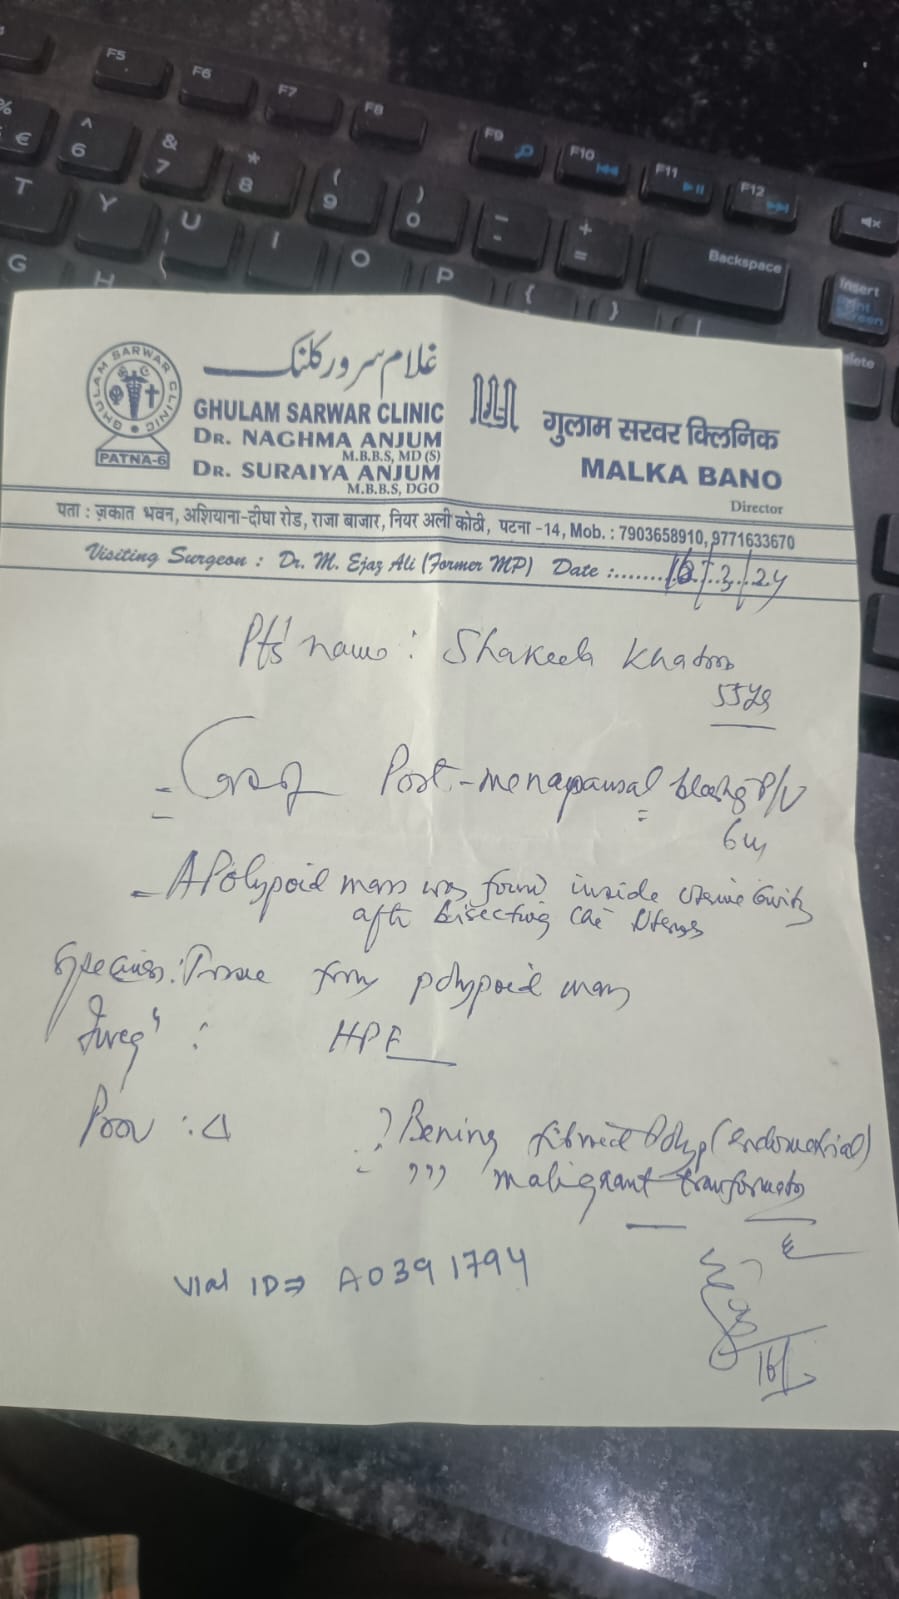 F5 F6 F7 F8 F9 F10 F11 F12
% € ^ 6 & 7 * 8 ( 9 ) 0 - + =
T Y U I O P { } Backspace Insert
G H Print Screen
غلام سرور کلنک
GHULAM SARWAR CLINIC
PATNA-6
GHULAM SARWAR CLINIC
DR. NAGHMA ANJUM
M.B.B.S, MD (S)
DR. SURAIYA ANJUM
M.B.B.S, DGO
गुलाम सरवर क्लिनिक
MALKA BANO
Director
पता : ज़कात भवन, अशियाना-दीघा रोड, राजा बाजार, नियर अली कोठी, पटना -14, Mob. : 7903658910, 9771633670
Visiting Surgeon : Dr. M. Ejaz Ali (Former MP) Date :....... 16/3/24
Pts' name : Shakeela Khatoon
55 yrs
- Post-menapausal bleeding P/V
- A Polypoid mass was found inside uterine cavity
after bisecting the uterus
Specimen : Tissue from polypoid mass
Inveg" : HPE
Prov : Δ ? Bening fibroid Polyp (endometrial)
? ,,, malignant transformation
Vial ID⇒ A0391794
16/3